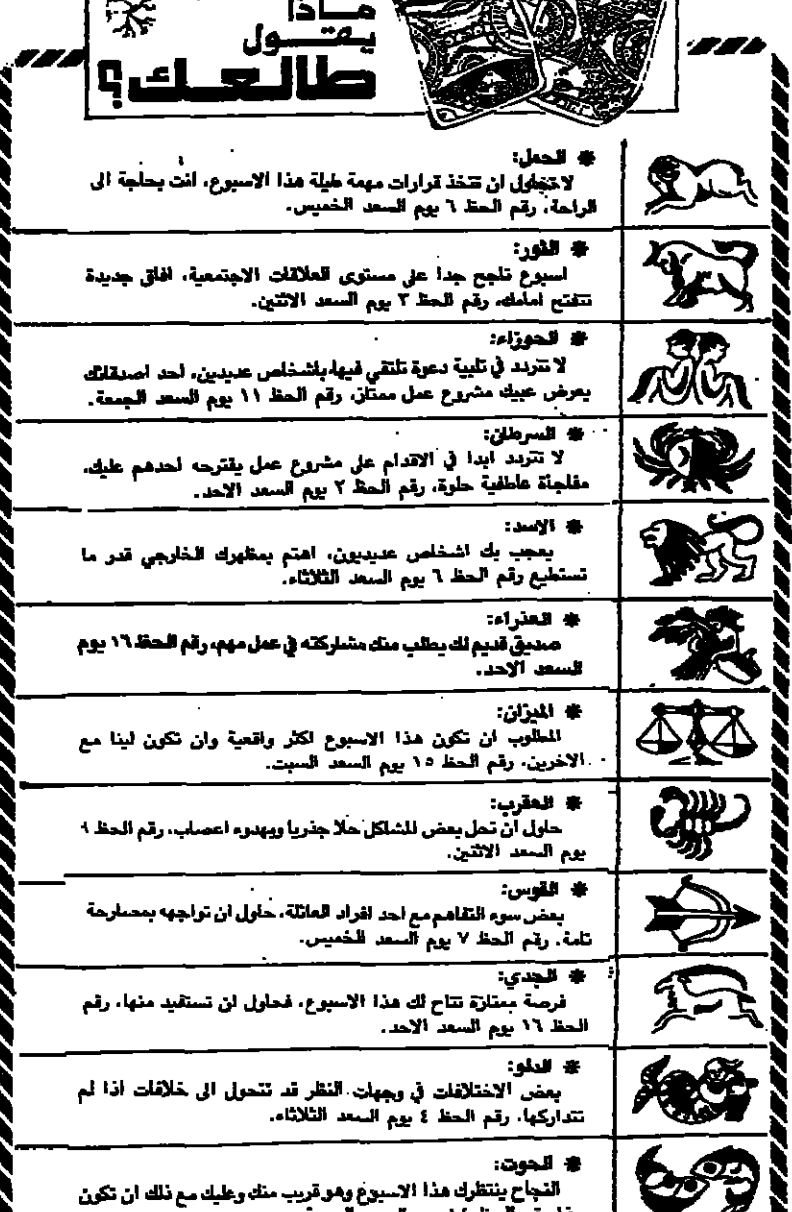 ماذا
يقول
طالعك؟
* الحمل:
لا تحاول ان تتخذ قرارات مهمة طيلة هذا الاسبوع، انت بحاجة الى
الراحة، رقم الحظ ٦ يوم السعد الخميس.
* الثور:
اسبوع ناجح جدا على مستوى العلاقات الاجتمعية، افاق جديدة
تتفتح امامك، رقم الحظ ٣ يوم السعد الاثنين.
* الجوزاء:
لا تتردد في تلبية دعوة تلتقي فيها باشخاص عديدين، احد اصدقائك
يعرض عبيك مشروع عمل ممتاز، رقم الحظ ١١ يوم السعد الجمعة.
* السرطان:
لا تتردد ابدا في الاقدام على مشروع عمل يقترحه احدهم عليك،
مفاجأة عاطفية حلوة، رقم الحظ ٢ يوم السعد الاحد.
* الاسد:
يعجب بك اشخاص عديديون، اهتم بمظهرك الخارجي قدر ما
تستطيع رقم الحظ ٦ يوم السعد الثلاثاء.
* العذراء:
صديق قديم لك يطلب منك مشاركته في عمل مهم، رقم الحظ ١٦ يوم
السعد الاحد.
* الميزان:
المطلوب ان تكون هذا الاسبوع اكثر واقعية وان تكون لينا مع
الاخرين، رقم الحظ ١٥ يوم السعد السبت.
* العقرب:
حاول ان تحل بعض المشاكل حلا جذريا وبهدوء اعصاب، رقم الحظ ٩
يوم السعد الاثنين.
* القوس:
بعض سوء التفاهم مع احد افراد العائلة، حاول ان تواجهه بمصارحة
تامة، رقم الحظ ٧ يوم السعد الخميس.
* الجدي:
فرصة ممتازة تتاح لك هذا الاسبوع، فحاول ان تستفيد منها، رقم
الحظ ١٦ يوم السعد الاحد.
* الدلو:
بعض الاختلافات في وجهات النظر قد تتحول الى خلافات اذا لم
تتداركها، رقم الحظ ٤ يوم السعد الثلاثاء.
* الحوت:
النجاح ينتظرك هذا الاسبوع وهو قريب منك وعليك مع ذلك ان تكون